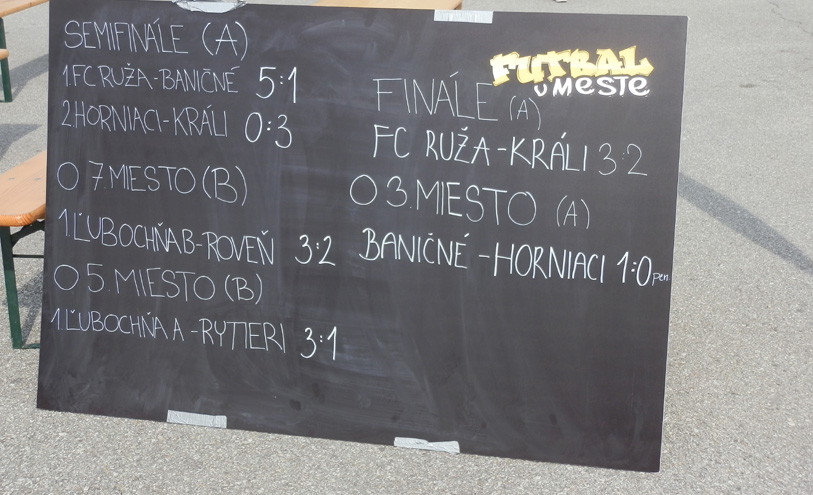 SEMIFINÁLE (A)
1 FC RUŽA-BANIČNÉ 5:1
2 HORNIACI-KRÁLI 0:3
O 7.MIESTO (B)
1 ĽUBOCHŇA B-ROVEŇ 3:2
O 5.MIESTO (B)
1 ĽUBOCHŇA A-RYTIERI 3:1
FUTBAL
V MESTE
FINÁLE (A)
FC RUŽA-KRÁLI 3:2
O 3.MIESTO (A)
BANIČNÉ-HORNIACI 1:0 pen.